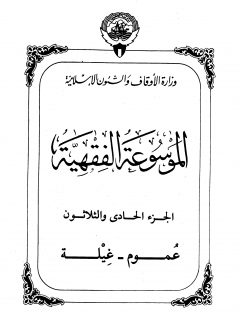 وزارة الأوقاف والشئون الإسلامية
الموسوعة الفقهية
الجزء الحادى والثلاثون
عُموم - غِيْلة